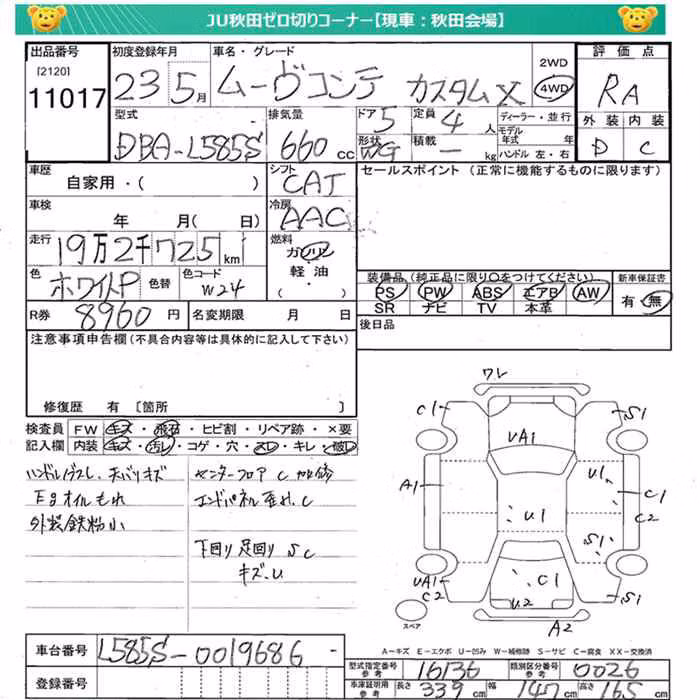 JU秋田ゼロ切りコーナー【現車：秋田会場】
出品番号 初度登録年月 車名・グレード 2WD 評価点
[2120] 11017 23 5月 ムーヴコンテ カスタムX 4WD RA
型式 排気量 ドア 5 定員 4 人 ディーラー・並行 外装 内装
DBA-L585S 660 cc 形状 WG 積載 - kg モデル年式 年 D C
ハンドル 左・右
車歴 シフト セールスポイント（正常に機能するものに限ります）
自家用・（ ） CAT
車検 冷房
年 月（ 日） AAC
走行 燃料
19万2千725km ガソリン
色 色替 色コード 軽油 装備品（純正品に限り○をつけてください） 新車保証書
ホワイトP W24 ・ PS PW ABS エアB AW 有・無
SR ナビ TV 本革
R券 8960円 名変期限 月 日 後日品
注意事項申告欄（不具合内容等は具体的に記入して下さい）
修復歴 有 [箇所 ]
検査員 FW キズ・飛石・ヒビ割・リペア跡・×要
記入欄 内装 キズ・汚レ・コゲ・穴・スレ・キレ・破レ
ハンドルスレ、天バリキズ
Egオイルもれ
外装鉄粉小
センターフロア C 補修
エンドパネル歪み、C
下回り足回り SC
キズ、U
ワレ
C1 S1
UA1
A1 U1 C1
C2
U1
S1
UA1 C1
C2 U2 S1
スペア A2
A-キズ E-エクボ U-凹み W-補修跡 S-サビ C-腐食 XX-交換済
車台番号 L585S-0019686
登録番号
型式指定番号 参考 16136 類別区分番号 参考 0026
車庫証明用 参考 長さ 339cm 幅 147cm 高さ 165cm